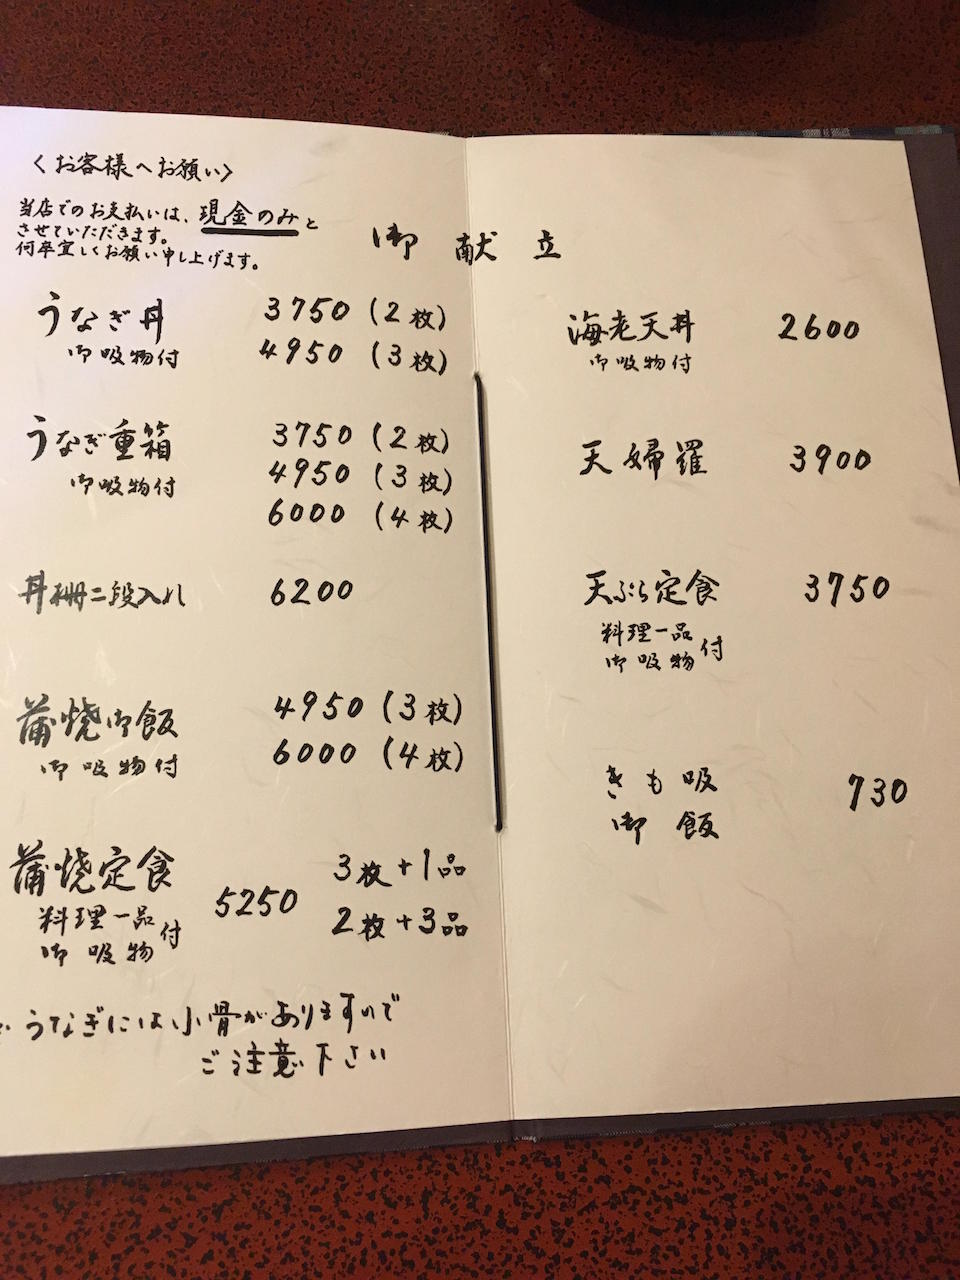 〈お客様へお願い〉
当店でのお支払いは、現金のみと
させていただきます。
何卒宜しくお願い申し上げます。
御献立
うなぎ丼 3750 (2枚)
御吸物付 4950 (3枚)
うなぎ重箱 3750 (2枚)
御吸物付 4950 (3枚)
6000 (4枚)
丼柵二段入れ 6200
蒲焼御飯 4950 (3枚)
御吸物付 6000 (4枚)
蒲焼定食 5250 3枚+1品
料理一品 御吸物 付 2枚+3品
うなぎには小骨がありますので
ご注意下さい
海老天丼 2600
御吸物付
天婦羅 3900
天ぷら定食 3750
料理一品
御吸物 付
きも吸 730
御飯